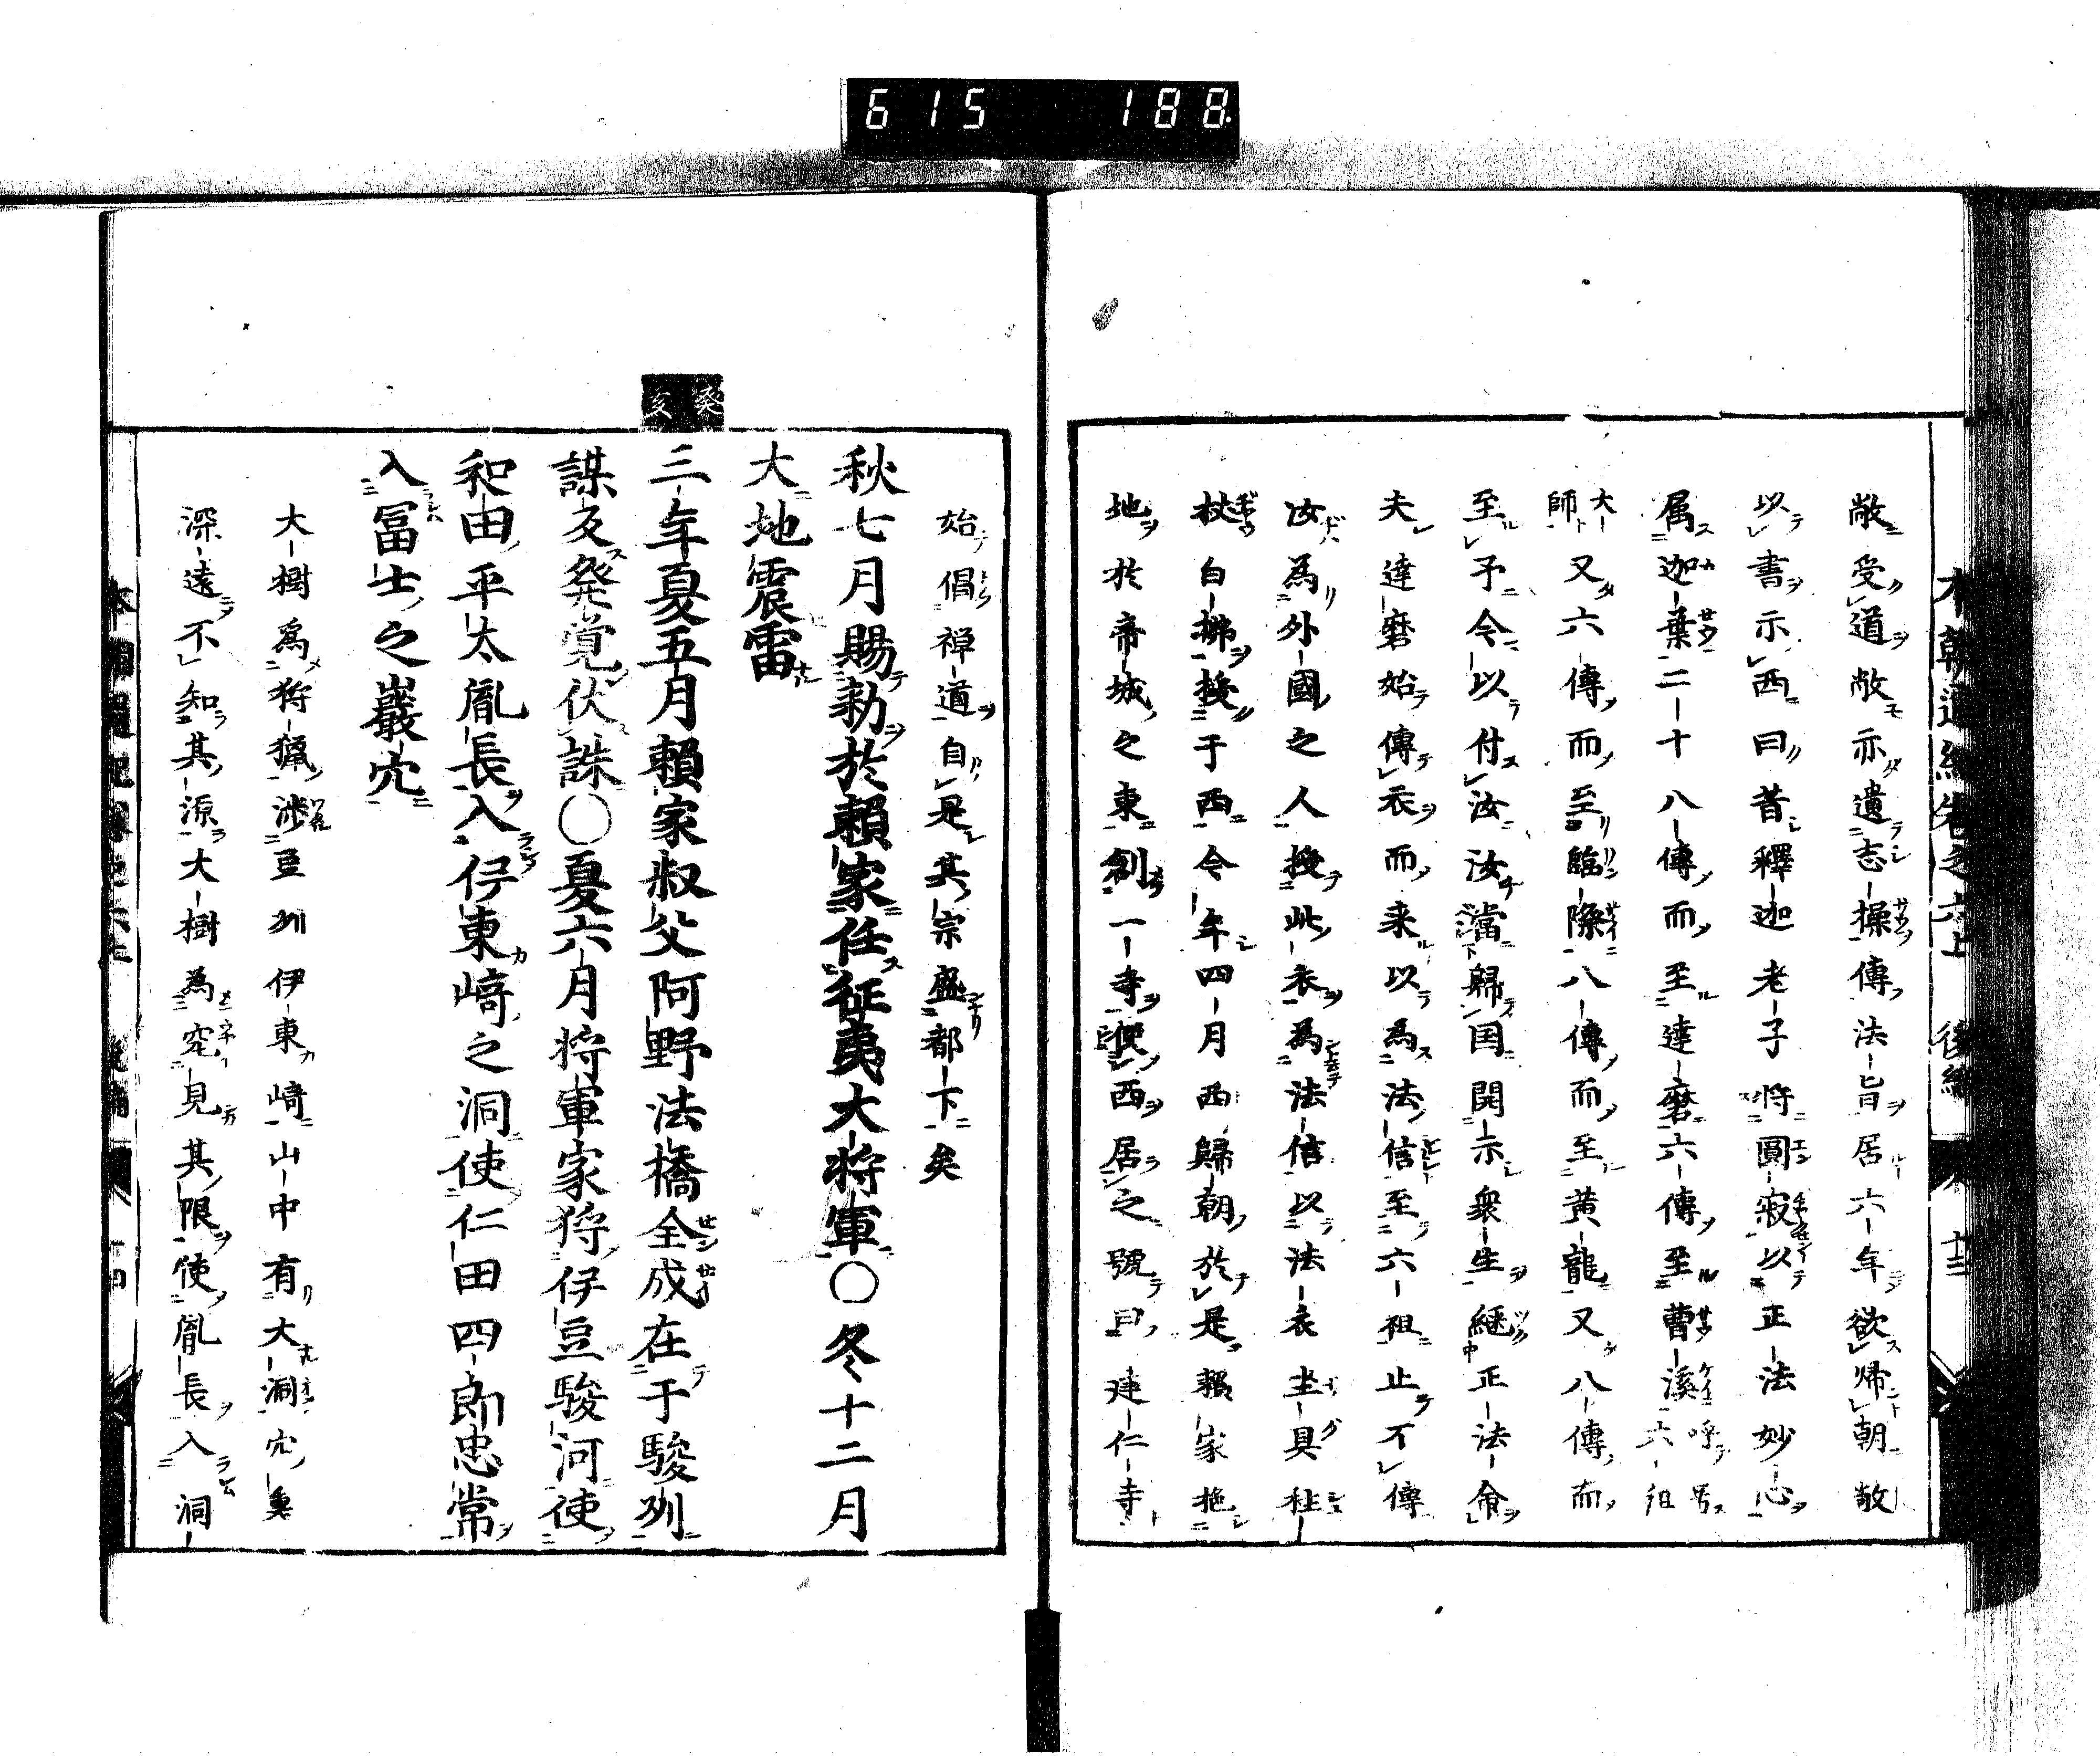 615 188
敞受道敞亦遺志操傳法旨居六年欲帰朝敞
以書示西曰昔釋迦老子将圓寂以正法妙心
属迦葉二十八傳而至達磨六傳至曹溪呼六祖号
大師又六傳而至臨際八傳而至黄龍又八傳而
至予今以付汝汝當歸国開示衆生継正法命
夫達磨始傳衣而来以為法信至六祖止不傳
汝為外國之人授此衣為法信以法衣坐具杜
杖白拂授于西今年四月西歸朝於是頼家施
地於帝城之東創一寺使西居之號曰建仁寺
始倡禅道自是其宗盛都下矣
秋七月賜勅於頼家任征夷大将軍〇冬十二月
大地震雷
癸亥
三年夏五月頼家叔父阿野法橋全成在于駿州
謀反発覚伏誅〇夏六月将軍家狩伊豆駿河使
和田平太胤長入伊東崎之洞使仁田四郎忠常
入冨士之巖穴
大樹為狩猟渉豆州伊東崎山中有大洞穴奥
深遠不知其源大樹為究見其限使胤長入洞